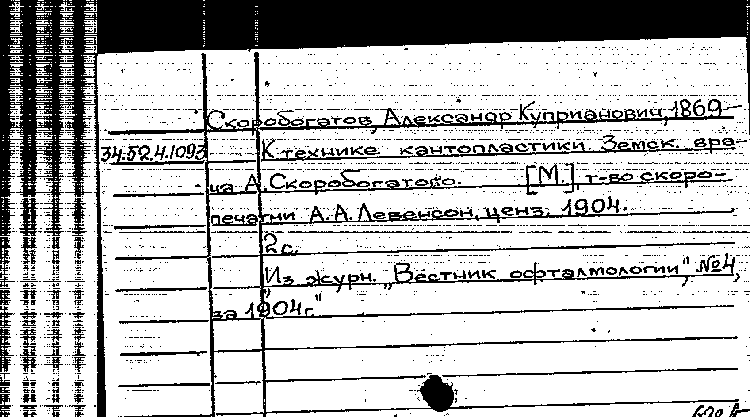 Скоробогатов, Александр Куприанович, 1869—
34.52.4.1093 К технике кантопластики. Земск. вра-
ча А. Скоробогатова. [М.], т-во скоро-
печатни А.А. Левенсон, ценз. 1904.
2 с.
"Из журн. „Вестник офталмологии", №4,
за 1904г."